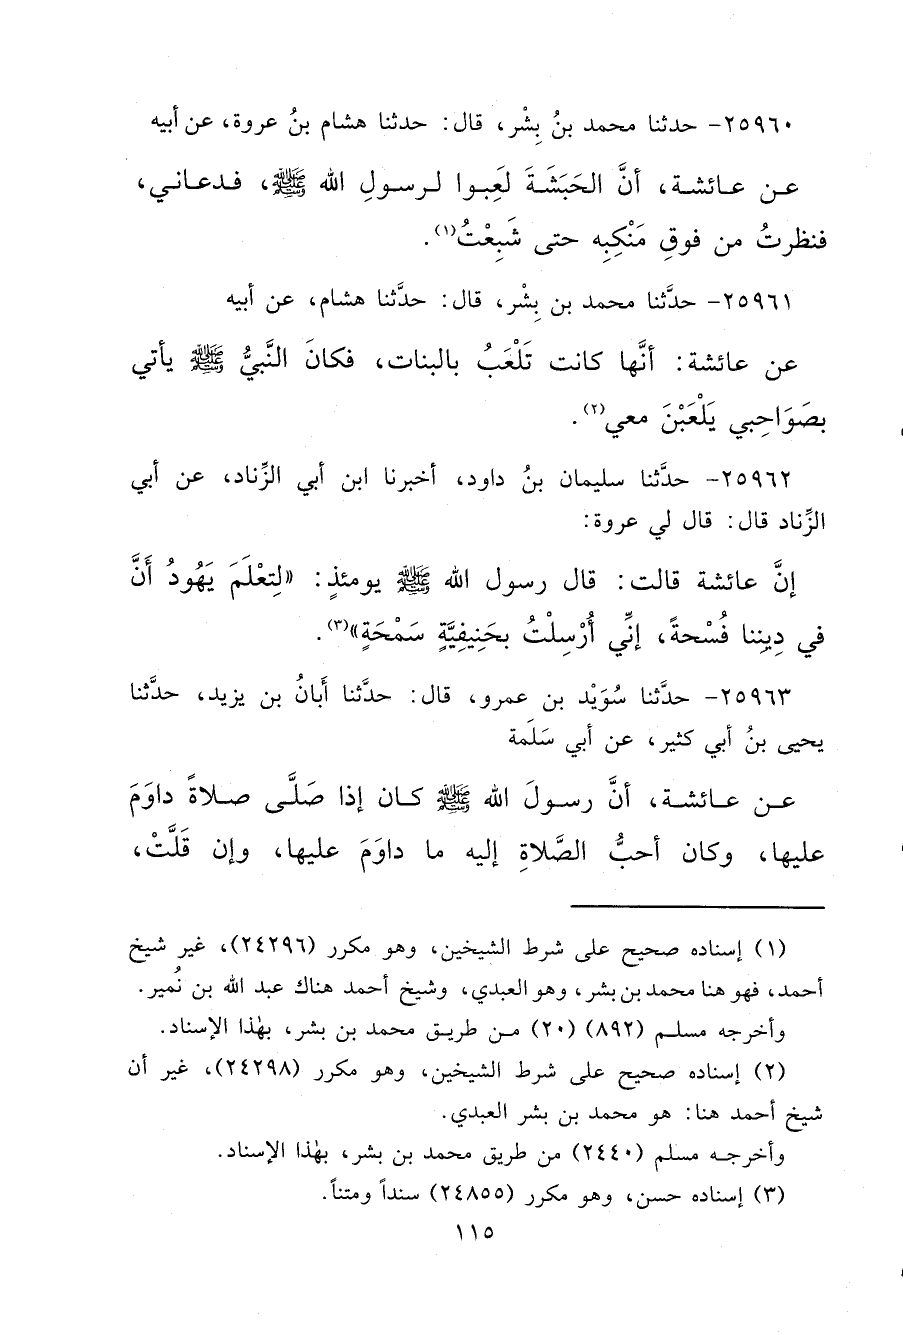 ٢٥٩٦٠- حدثنا محمد بنُ بِشْر، قال: حدثنا هشام بنُ عروة، عن أبيه
عـن عـائشـة، أنَّ الحَبَشَـةَ لَعِبـوا لـرسـولِ الله ﷺ، فـدعـانـي،
فنظرتُ من فوقِ مَنْكِبِه حتى شَبِعْتُ(١).
٢٥٩٦١- حدَّثنا محمد بن بِشْر، قال: حدَّثنا هشام، عن أبيه
عن عائشة: أنَّها كانت تَلْعَبُ بالبنات، فكانَ النَّبيُّ ﷺ يأتي
بصَوَاحِبي يَلْعَبْنَ معي(٢).
٢٥٩٦٢- حدَّثنا سليمان بنُ داود، أخبرنا ابن أبي الزِّناد، عن أبي
الزِّناد قال: قال لي عروة:
إنَّ عائشة قالت: قال رسول الله ﷺ يومئذٍ: «لتِعْلَمَ يَهُودُ أَنَّ
في دِيِننا فُسْحةً، إنِّي أُرْسِلْتُ بحَنِيفِيَّةٍ سَمْحَةٍ»(٣).
٢٥٩٦٣- حدَّثنا سُوَيْد بن عمرو، قال: حدَّثنا أَبانُ بن يزيد، حدَّثنا
يحيى بنُ أبي كثير، عن أبي سَلَمة
عـن عـائشـة، أنَّ رسـولَ الله ﷺ كـان إذا صَلَّـى صـلاةً داوَمَ
عليها، وكان أحبُّ الصَّلاةِ إليه ما داوَمَ عليها، وإن قَلَّتْ،
(١) إسناده صحيح على شرط الشيخين، وهو مكرر (٢٤٢٩٦)، غير شيخ
أحمد، فهو هنا محمد بن بشر، وهو العبدي، وشيخ أحمد هناك عبد الله بن نُمير.
وأخرجه مسلـم (٨٩٢) (٢٠) مـن طريـق محمد بن بشر، بهٰذا الإسناد.
(٢) إسناده صحيح على شرط الشيخين، وهو مكرر (٢٤٢٩٨)، غير أن
شيخ أحمد هنا: هو محمد بن بشر العبدي.
وأخرجـه مسلم (٢٤٤٠) من طريق محمد بن بشر، بهٰذا الإسناد.
(٣) إسناده حسن، وهو مكرر (٢٤٨٥٥) سنداً ومتناً.
١١٥